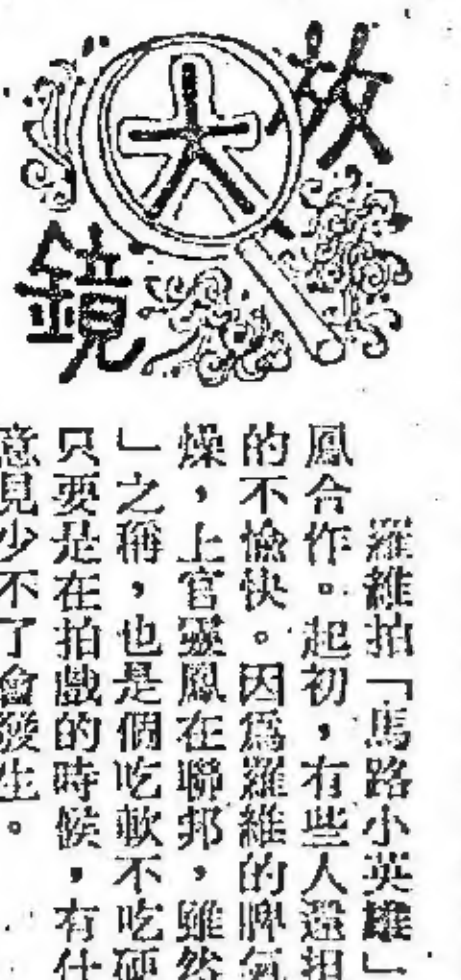 放大鏡
羅維拍「馬路小英雄」，
鳳合作。起初，有些人還担
的不愉快。因爲羅維的脾氣
燥，上官靈鳳在聯邦，雖然
」之稱，也是個吃軟不吃硬
只要是在拍戲的時候，有什
意見少不了會發生。